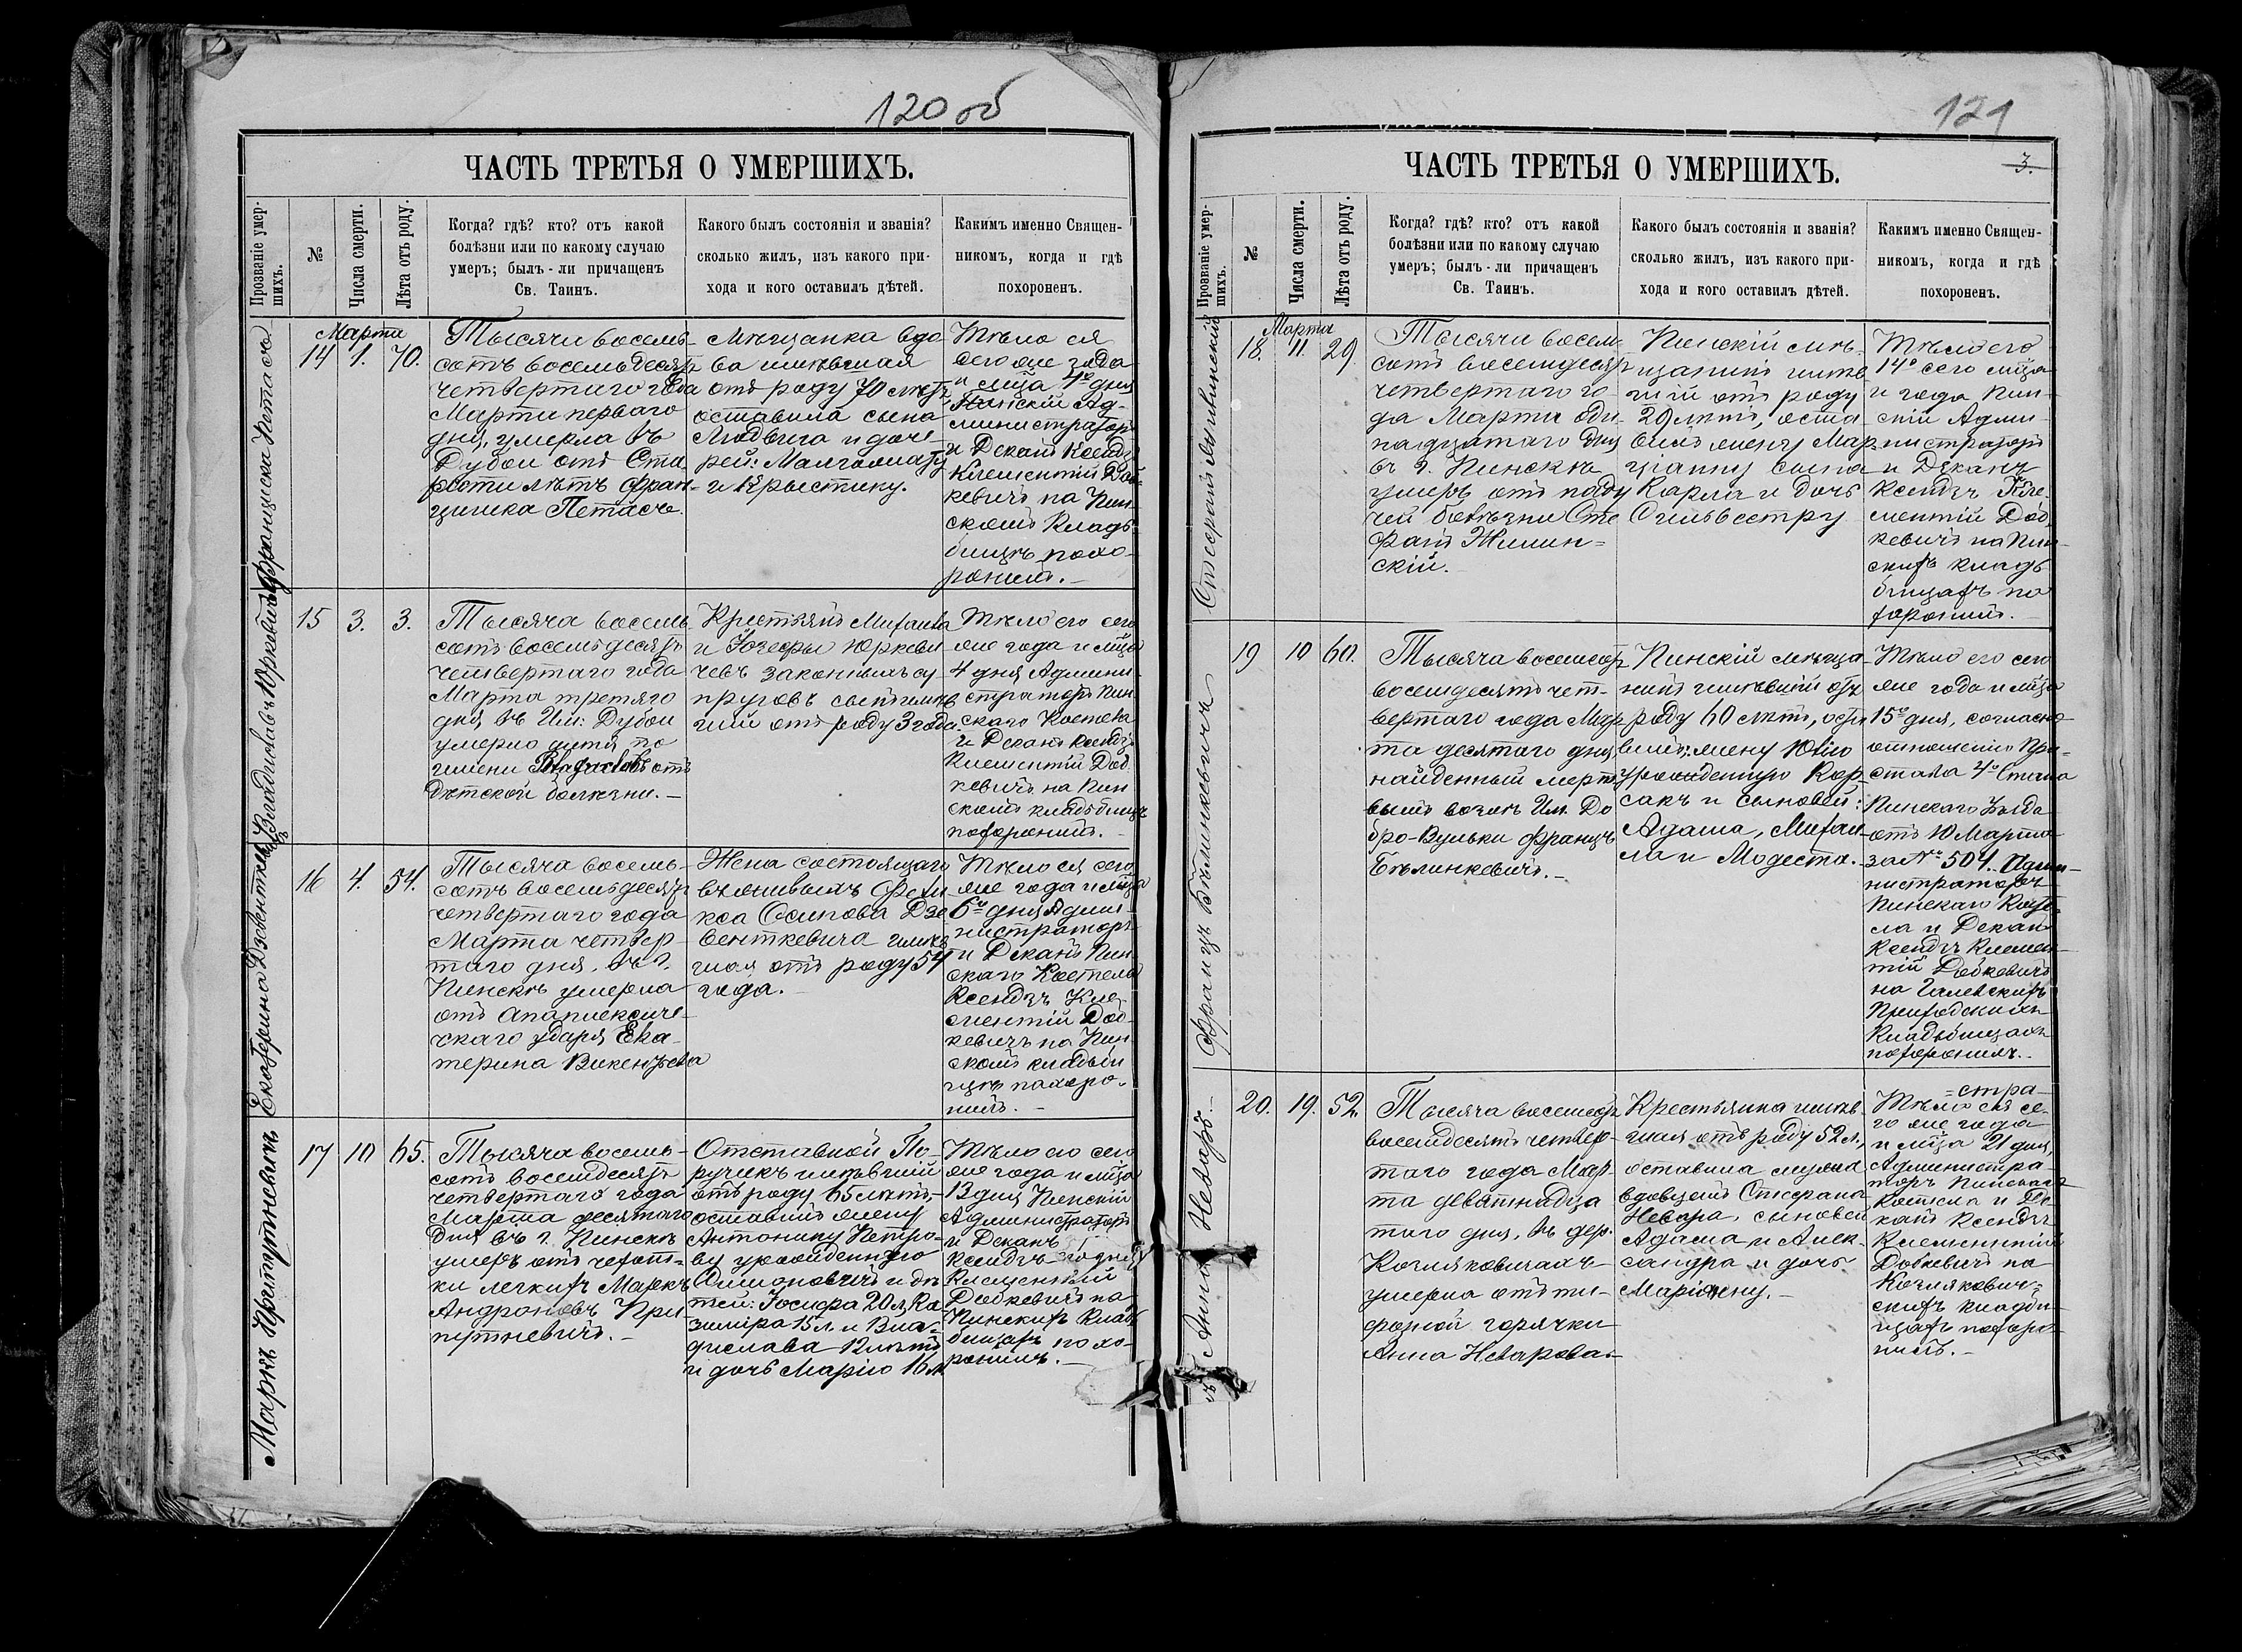 120 об
ЧАСТЬ ТРЕТЬЯ О УМЕРШИХЪ.
Прозваніе умер-
шихъ.
№
Числа смерти.
Лѣта отъ роду.
Когда? гдѣ? кто? отъ какой
болѣзни или по какому случаю
умеръ; былъ-ли причащенъ
Св. Таинъ.
Какого былъ состоянія и званія?
сколько жилъ, изъ какого при-
хода и кого оставилъ дѣтей.
Какимъ именно Священ-
никомъ, когда и гдѣ
похороненъ.
Франциска Петасъ
Марта
14 1. 70.
Тысяча восемь-
сотъ восемьдесятъ
четвертаго года
Марта перваго
дня, умерла въ
Дубои отъ Ста
рости лѣтъ Фран-
цишка Петасъ.
Мѣщанка вдо
ва имѣвшая
отъ роду 70 лѣтъ,
оставила сына
Людвига и доче
рей: Малгожату
и Крыстину.
Тѣло ея
сего же года
и мца 4го дня
Пинскій Ад-
министраторъ
и Деканъ Ксендзъ
Климентій Дод-
кевичъ на Пин-
скомъ Кладь-
бищѣ похо-
ронилъ.-
Юркевичъ
15 3. 3.
Тысяча восемь
сотъ восемьдесятъ
четвертаго года
Марта третяго
дня, въ Им: Дубои
умерло дитя по
имени отъ
дѣтской болѣзни.-
Крестьянъ Михаила
и Юзефы Юркеви
чевъ законныхъ су-
пруговъ сынъ имѣв
шій отъ роду 3 года.
Тѣло его сего
же года и мца
4 дня Админи-
страторъ Пин-
скаго Костела
и Деканъ Ксендзъ
Климентій Дод
кевичъ на Пин
скомъ кладьбищѣ
похоронилъ.-
Екатерина
16 4. 54.
Тысяча восемь-
сотъ восемьдесятъ
четвертаго года
Марта четвер-
таго дня, въ г.
Пинскѣ умерла
отъ апаплексиче-
скаго удара Ека-
терина Викентьева
Жена состоящаго
въ Фели
кса Осипова Дзе
венткевича имѣв
шая отъ роду 54
года.-
Тѣло ея сего
же года и мца
6го дня Адми-
нистраторъ
и Деканъ Пин
скаго Костела
Ксендзъ Кле-
ментій Дод-
кевичъ на Пин-
скомъ кладьби
щѣ похоро-
нилъ.-
Маркъ Припутневичъ
17 10 65.
Тысяча восемь-
сотъ восемдесятъ
четвертаго года
Марта десятаго
дня въ г. Пинскѣ
умеръ отъ чахот-
ки легкихъ Маркъ
Андроновъ При
путневичъ.-
Отставной По-
ручикъ имѣвшій
отъ роду 65 лѣтъ,-
оставилъ жену
Антонину Петро-
ву урожденную
и дѣ
тей: Іосифа 20 л, Ка-
зимира 15 л. и Вла-
дислава 12 лѣтъ
и дочь Марію 16 л.
Тѣло его сего
же года и мца
13 дня Пинскій
Администраторъ
и Деканъ
Ксендзъ
Климентій
Додкевичъ на
Пинскихъ Кладь
бищахъ похо-
ронилъ.-
121
3.
ЧАСТЬ ТРЕТЬЯ О УМЕРШИХЪ.
Прозваніе умер-
шихъ.
№
Числа смерти.
Лѣта отъ роду.
Когда? гдѣ? кто? отъ какой
болѣзни или по какому случаю
умеръ; былъ-ли причащенъ
Св. Таинъ.
Какого былъ состоянія и званія?
сколько жилъ, изъ какого при-
хода и кого оставилъ дѣтей.
Какимъ именно Священ-
никомъ, когда и гдѣ
похороненъ.
Стефанъ Жилинскій
Марта
18. 11. 29.
Тысяча восем-
сотъ восемдесятъ
четвертаго го-
да Марта оди-
надцатаго дня
въ г. Пинскѣ
умеръ отъ паду
чей болѣзни Сте
фанъ Жилин=
скій.
Пинскій мѣ-
щанинъ имѣв
шій отъ роду
29 лѣтъ, оста
вилъ жену Мар-
ціанну сына
Карла и дочь
Сильвестру
Тѣло его
14го сего мца
и года Пин-
скій Адми-
нистраторъ
и Деканъ
Ксендзъ Кле-
ментій Дод-
кевичъ на Пин-
скихъ кладь
бищахъ по
хоронилъ.-
Францъ Бѣлинкевичъ
19 10 60.
Тысяча восемсотъ
восемдесятъ чет-
вертаго года Мар
та десятаго дня,
найденный мерт-
вымъ возлѣ Им. До
бро-Вульки Францъ
Бѣлинкевичъ.-
Пинскій мѣща-
нинъ имѣвшій отъ
роду 60 лѣтъ, оста
вилъ; жену Юлію
урожденную Кор-
сакъ и сыновей:
Адама, Михаи-
ла и Модеста.
Тѣло его сего
же года и мца
15го дня, согласно
отношенію При-
става 4го Стана
Пинскаго Уѣзда
отъ 10 Марта
за № 504. Адми-
нистраторъ
Пинскаго Косте-
ла и Деканъ
Ксендзъ Климен-
тій Додкевичъ
на
Приходскихъ
Кладьбищахъ
похоронилъ.-
Анна Неваръ.-
20. 19. 52.
Тысяча восемсотъ
восемдесятъ четвер-
таго года Мар-
та девятнадца
таго дня, въ дер.
Кочляковичахъ
умерла отъ ти-
фозной горячки
Анна Неварова.-
Крестьянка имѣв-
шая отъ роду 52 л.,
оставила мужа
вдовцемъ Стефана
Невара, сыновей
Адама и Алек-
сандра и дочь
Маріянну.-
=стра-
Тѣло ея се-
го же года
и мца 21 дня,
Администра-
торъ Пинскаго
Костела и Де-
канъ Ксендзъ
Климентій
Додкевичъ на
Кочлякович-
скихъ кладби-
щахъ похоро-
нилъ.-